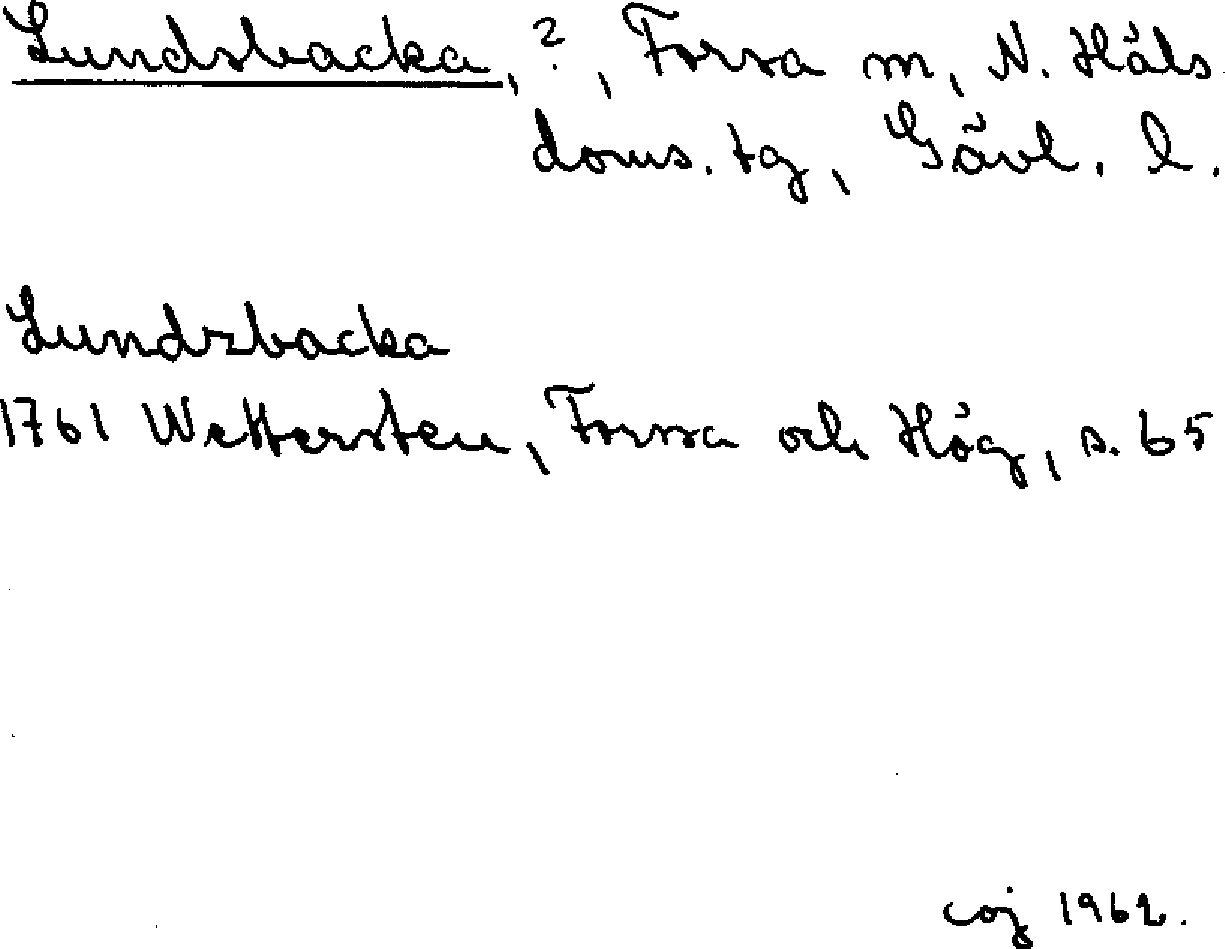 Lundsbacka, ?, Forssa sn, N. Häls.
doms. tg, Gävl. l.
Lundzbacka
1761 Wettersten, Forssa och Hög, s. 65
coj 1962.